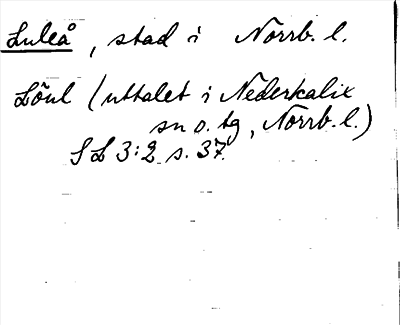 Luleå, stad i Norrb. l.
Löul (uttalet i Nederkalix
sn o. tg, Norrb. l.)
SL 3:2 s. 37.